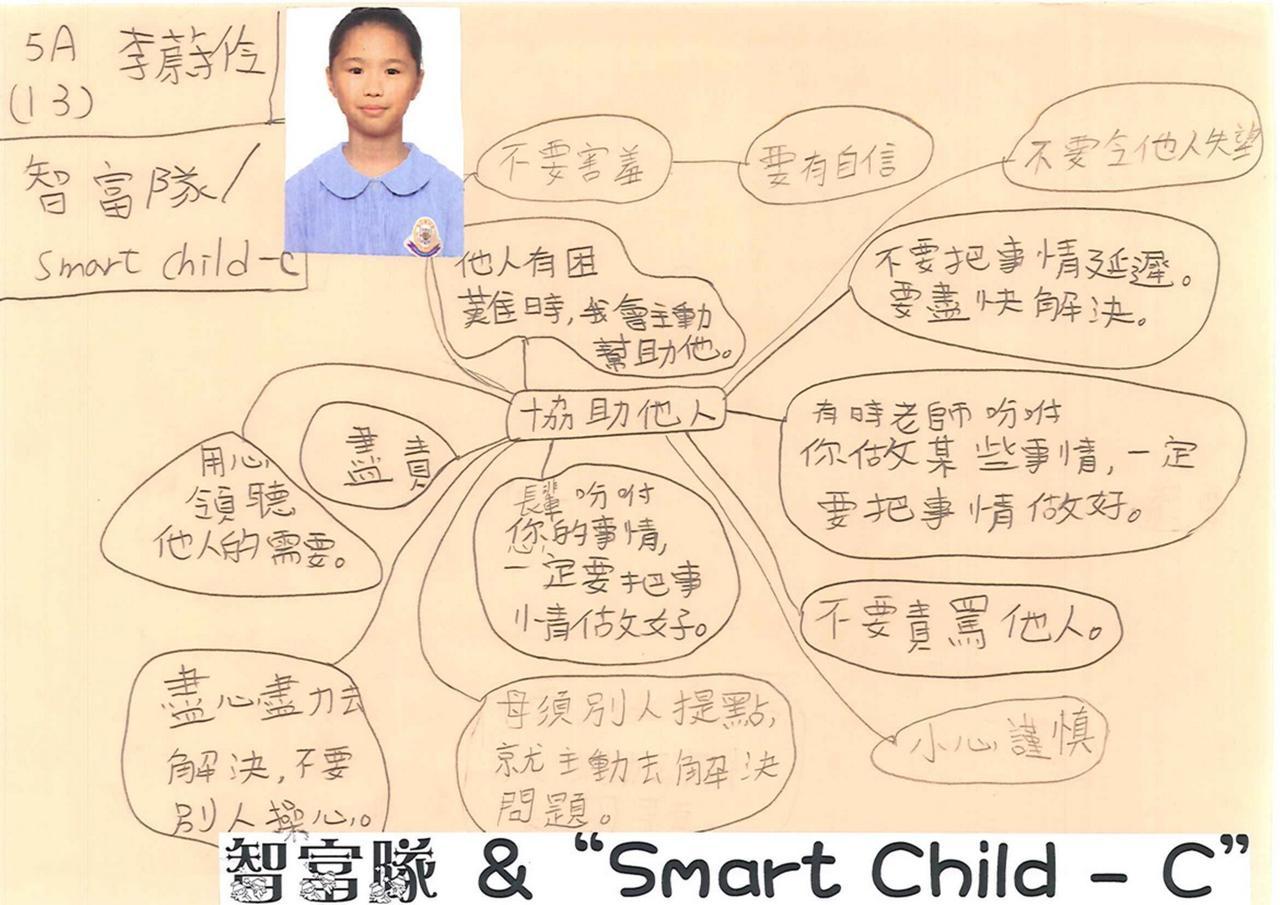 5A 李蔚伶
(13)
智富隊/
Smart Child-C
不要害羞
要有自信
不要令他人失望
他人有困
難時,我會主動
幫助他。
不要把事情延遲。
要盡快解決。
協助他人
有時老師吩咐
你做某些事情,一定
要把事情做好。
盡責
用心
領聽
他人的需要。
長輩吩咐
您的事情,
一定要把事
情做好。
不要責罵他人。
小心謹慎
盡心盡力去
解決,不要
別人操心。
毋須別人提點,
就主動去解決
問題。
智富隊 & “Smart Child - C”